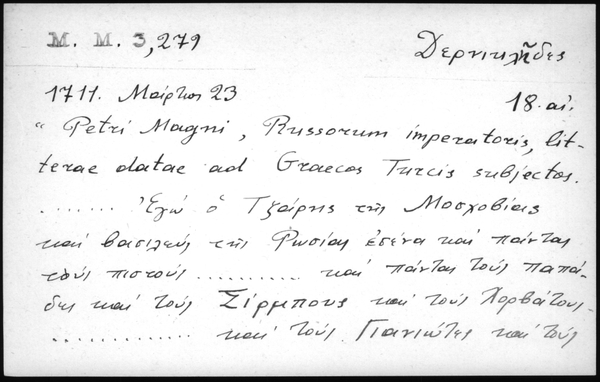 M. M. 3,279
Δερνικλῆδες
1711. Μάρτιος 23
18. αἰ.
" Petri Magni, Russorum imperatoris, lit-
terae datae ad Graecos Turcis subjectos.
....... Ἐγώ ὁ Τζάρης τῆς Μοσχοβίας
καί βασιλεύς τῆς Ρωσίας ἐσένα καί πάντας
τούς πιστούς .......... καί πάντας τούς παπά-
δες καί τούς Σίρμπους καί τούς Χορβάτους-
............ καί τούς Γιανιώτες καί τούς